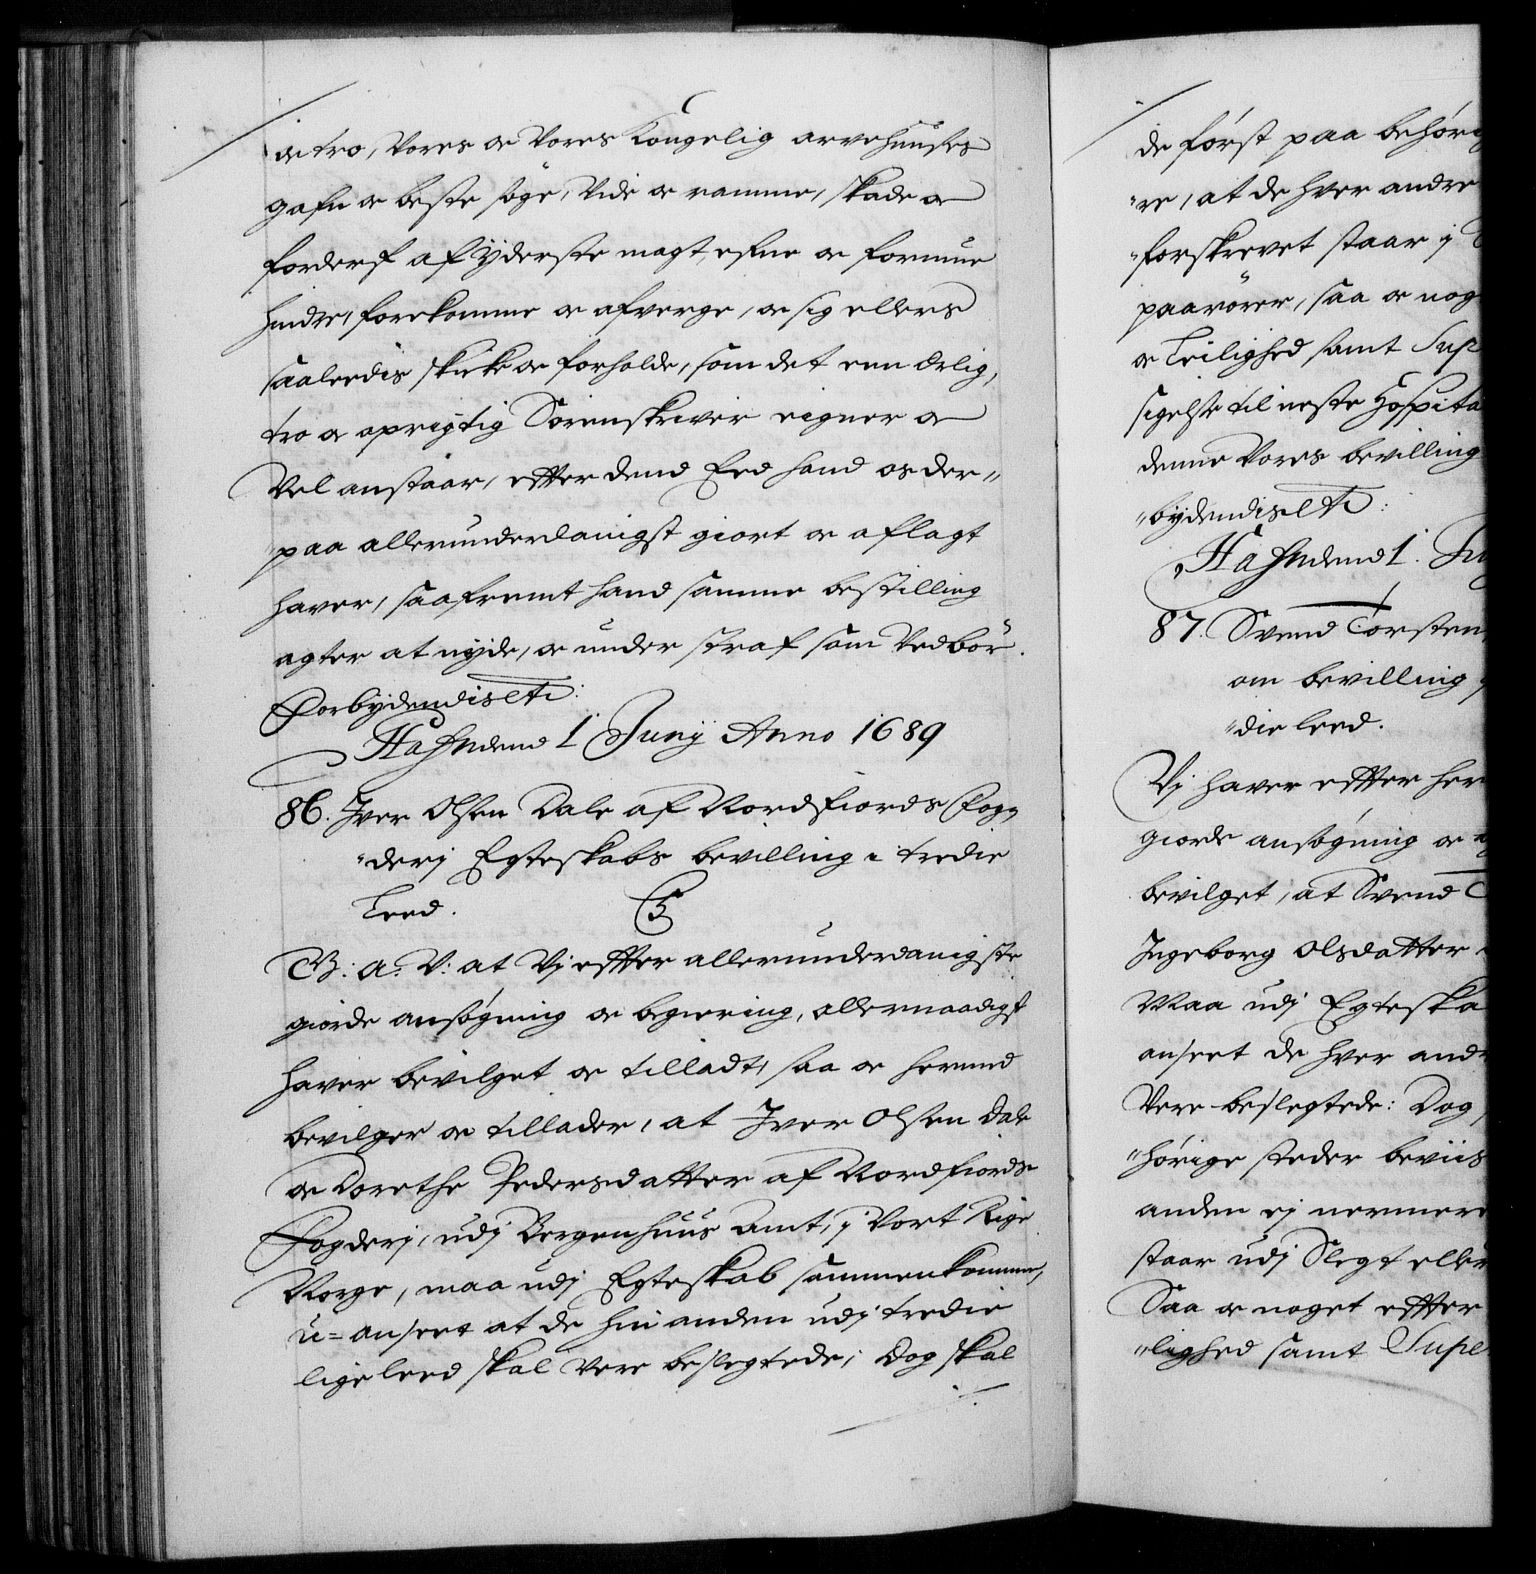 oc tro, Vores oc Vores Kongelig arvehuuses
gafn oc beste söge, Vide oc ramme, skade oc
forderf af ÿderste magt, efne oc formue
hindre, forekomme oc afverge, oc sig ellers
saaledis skicke oc forholde, som det een ærlig,
tro oc oprigtig Sorenskriver eigner oc
Vel anstaar, effter dend Eed hand os der„
„paa allerunderdanigst giort oc aflagt
haver, saafremt hand samme bestilling
agter at nyde, oc under straf som Vedbör.
Forbydendis etc:
Hafn dend 1 Junÿ Anno 1689
86. Iver Olsen Dale af Nordfiords Fog„
„derj Egteskabs bevilling i tredie
Leed.
G: A. V: at Vj effter allerunderdanigste
giorde ansögning oc begiering, allernaadigst
haver bevilget oc tilladt, saa oc hermed
bevilger oc tillader, at Iver Olsen Dale
oc Dorethe Pedersdatter af Nordfiords
Fogderj, udj Bergenhuus Amt, j Vort Rige
Norge, maa udj Egteskab sammenkomme,
u=anseet at de hin anden udj tredie
lige leed skal Vere beslegtede; Dog skal
de först paa behöri
„re, at de hver andre
„forskrevet staar j
paarörer, saa oc nog
oc Leilighed samt Sup
sigelse til neste Hospita
denne Vores bevilling
„bydendis etc:
Hafn dend 1. Ju
87. Svend Torsten
om bevilling
„die leed.
Vj haver effter her
giorde ansögning oc
bevilget, at Svend T
Ingeborg Olsdatter
Maa udj Egteska
anseet de hver and
Vere beslegtede: Dog
„hörige steder beviis
anden ej nermere
staar udj Slegt eller
Saa oc noget effter
„lighed samt Supe